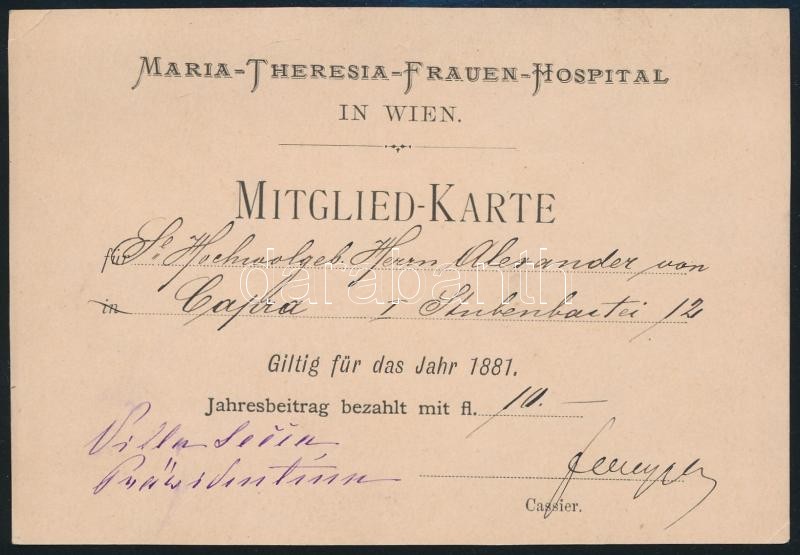 MARIA-THERESIA-FRAUEN-HOSPITAL
IN WIEN.
MITGLIED-KARTE
für Se. Hochwolgeb. Herrn Alexander von
in Capra I Stubenbastei 12
darabanth
Giltig für das Jahr 1881.
Jahresbeitrag bezahlt mit fl. 10.—
Präsidentinn
Cassier.